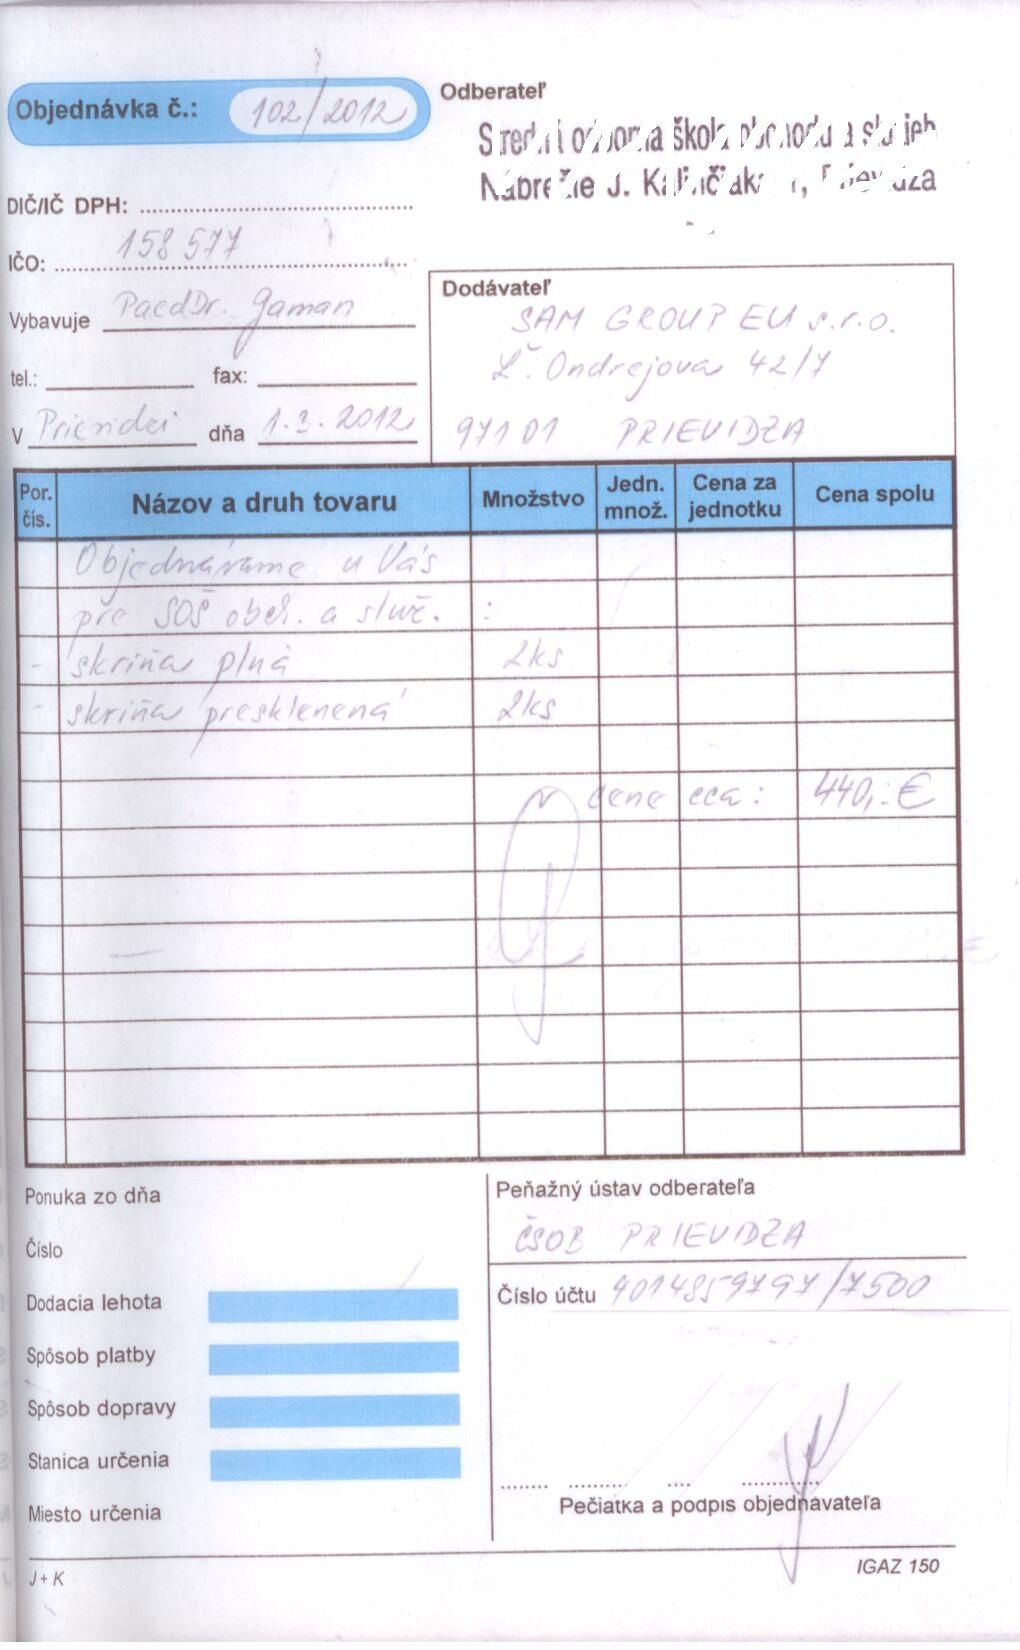 Objednávka č.: 102/2012
Odberateľ
Stredná odborná škola obchodu a služieb
Nábrežie J. Kalinčiaka 1, Prievidza
DIČ/IČ DPH:
IČO: 158 577
Vybavuje PaedDr. Gaman
tel.: fax:
V Prievidzi dňa 1.3.2012
Dodávateľ
SAM GROUP EU s.r.o.
Ľ. Ondrejova 42/7
971 01 PRIEVIDZA
Por. čís. Názov a druh tovaru Množstvo Jedn. množ. Cena za jednotku Cena spolu
Objednávame u Vás
pre SOŠ obch. a služ. :
- skriňa plná 2ks
- skriňa presklenená 2ks
v cene cca: 440,- €
Ponuka zo dňa
Číslo
Dodacia lehota
Spôsob platby
Spôsob dopravy
Stanica určenia
Miesto určenia
Peňažný ústav odberateľa
ČSOB PRIEVIDZA
Číslo účtu 4014859797/7500
Pečiatka a podpis objednávateľa
J + K
IGAZ 150